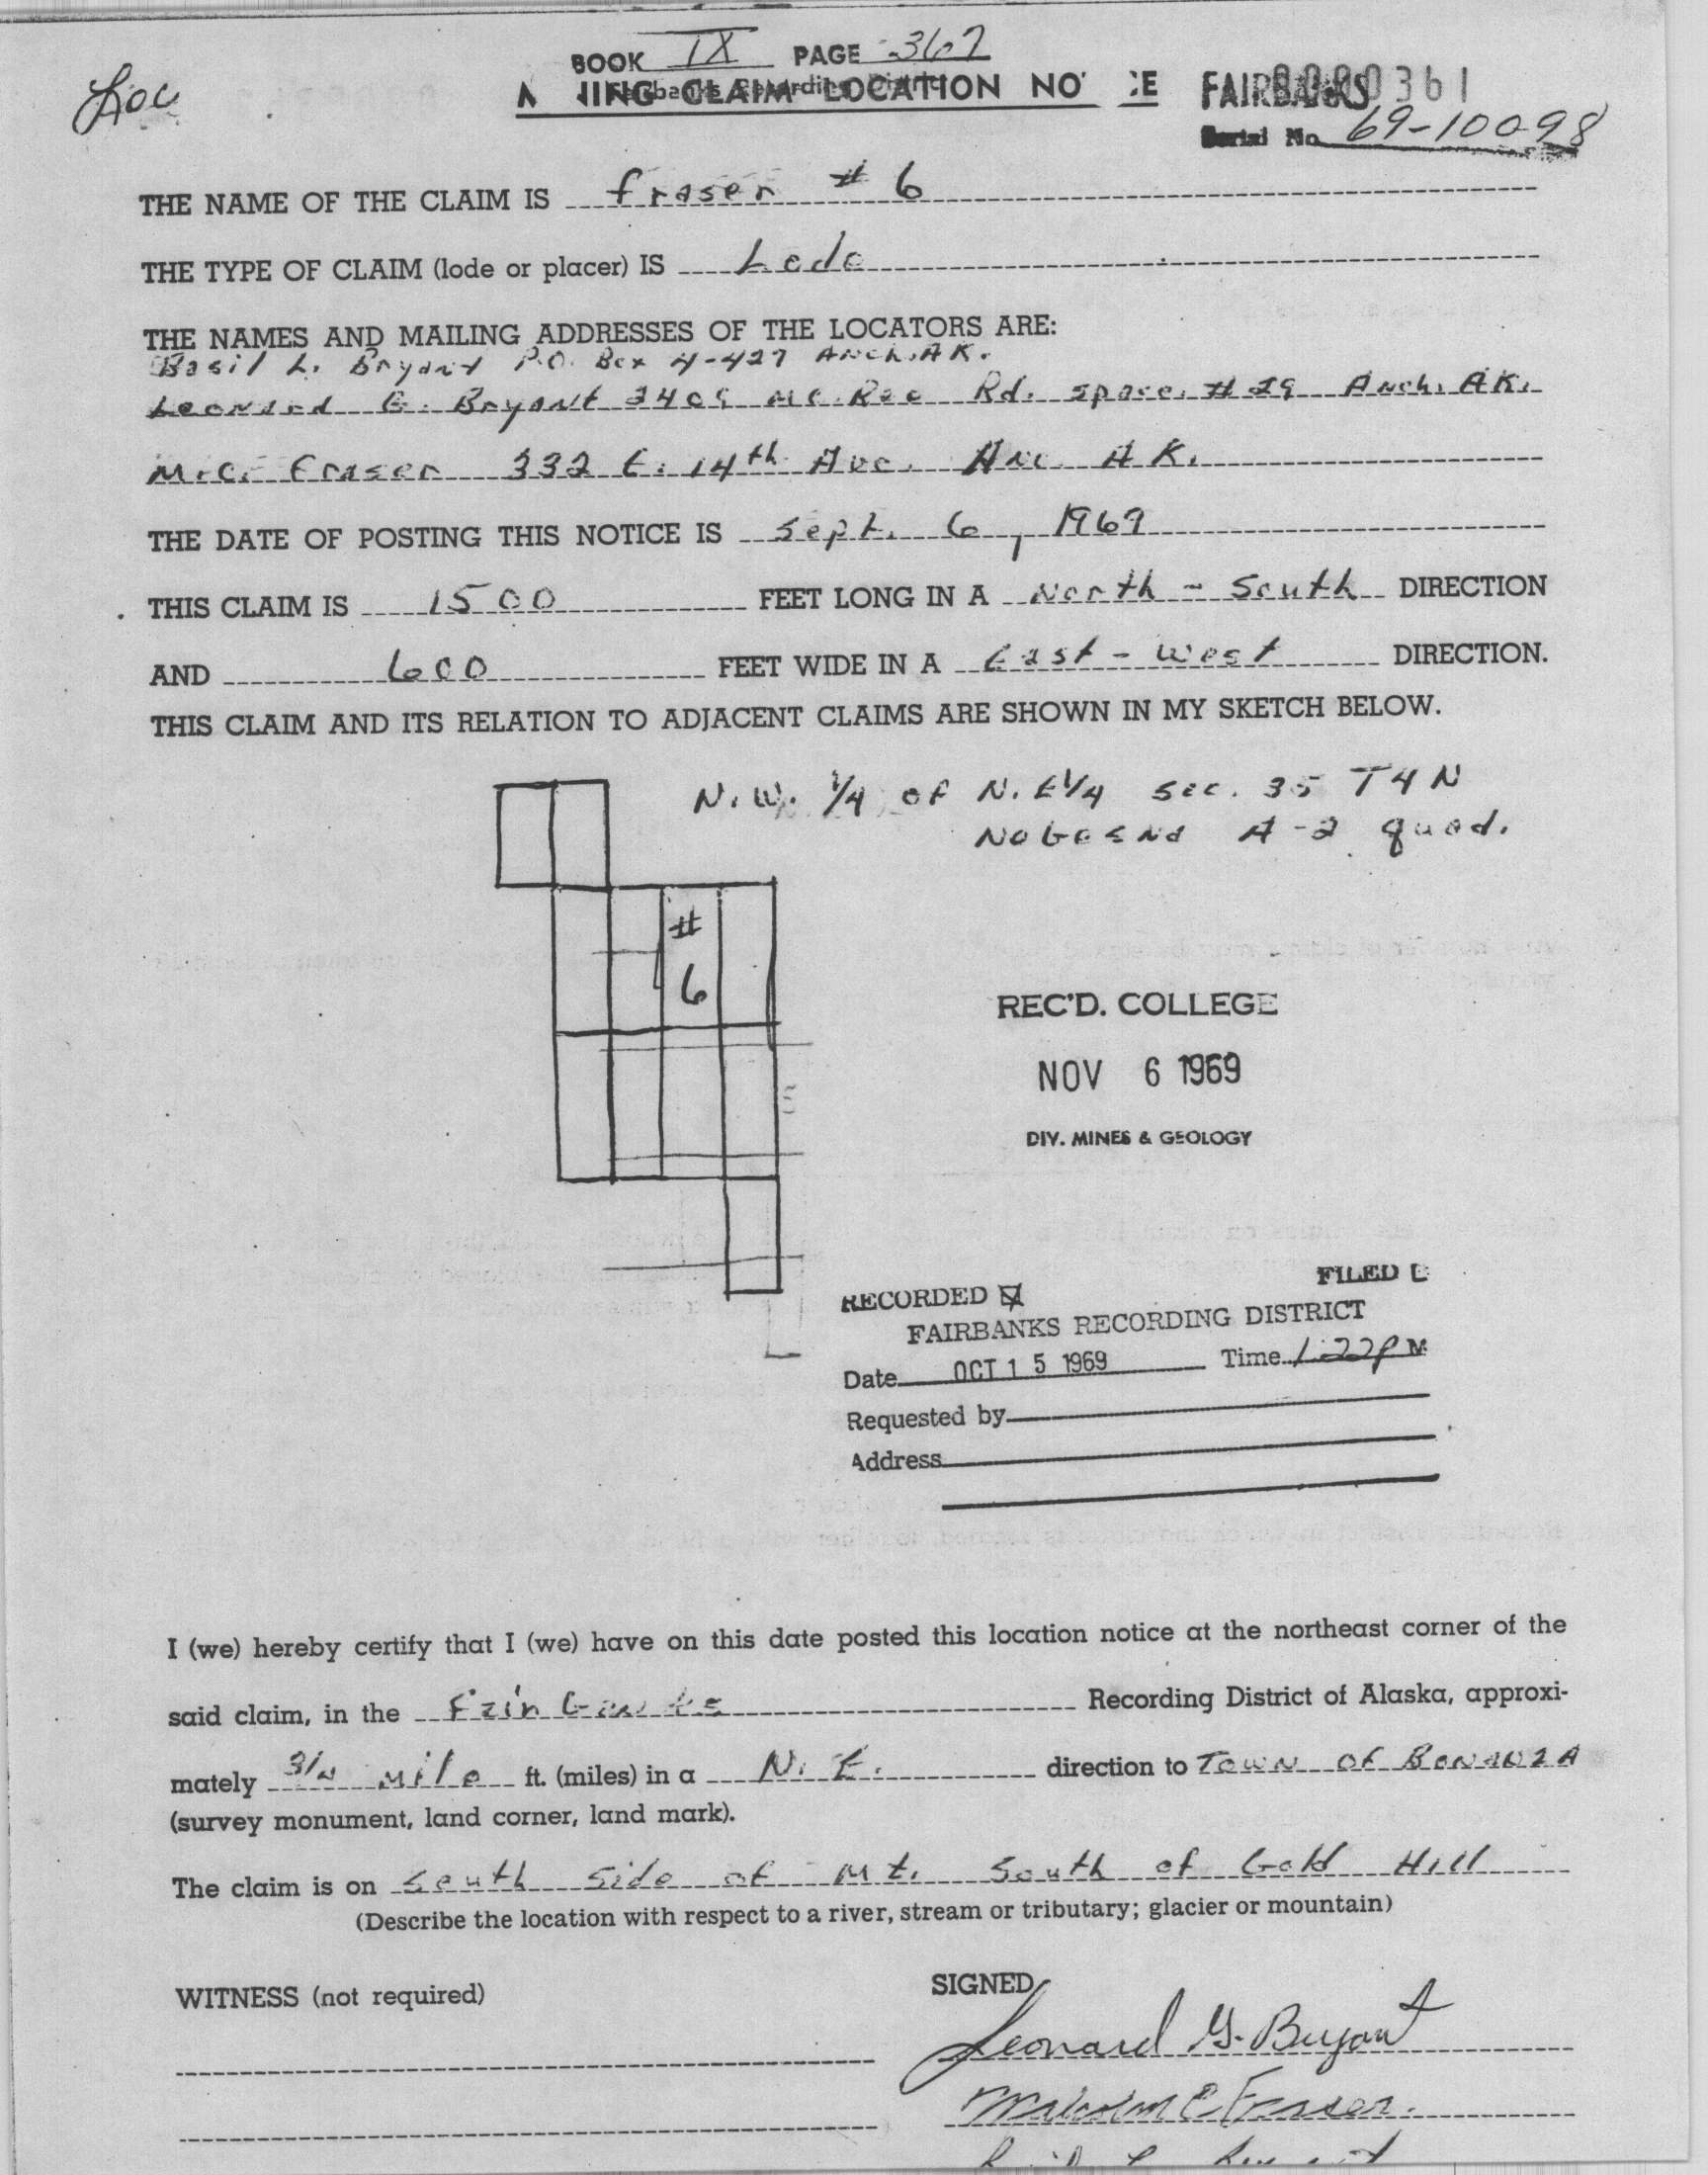 Loc
BOOK IX PAGE 367
NING CLAIM LOCATION NO CE FAIRBANKS
Serial No. 69-10098
THE NAME OF THE CLAIM IS Fraser # 6
THE TYPE OF CLAIM (lode or placer) IS Lode
THE NAMES AND MAILING ADDRESSES OF THE LOCATORS ARE:
Basil L. Bryant P.O. Box 4-427 Anch. AK.
Leonard G. Bryant 3409 Mc Rae Rd. space #29 Anch. AK.
M.C. Fraser 332 E. 14th Ave. Anc. AK.
THE DATE OF POSTING THIS NOTICE IS Sept. 6, 1969
THIS CLAIM IS 1500 FEET LONG IN A North - South DIRECTION
AND 600 FEET WIDE IN A East - West DIRECTION.
THIS CLAIM AND ITS RELATION TO ADJACENT CLAIMS ARE SHOWN IN MY SKETCH BELOW.
N.W. 1/4 of N.E1/4 sec. 35 T4N
Nabesna A-2 quad.
#
6
REC'D. COLLEGE
NOV 6 1969
DIV. MINES & GEOLOGY
RECORDED FILED
FAIRBANKS RECORDING DISTRICT
Date OCT 15 1969 Time 1:22PM
Requested by
Address
I (we) hereby certify that I (we) have on this date posted this location notice at the northeast corner of the
said claim, in the Fairbanks Recording District of Alaska, approxi-
mately 3/4 mile ft. (miles) in a N.E. direction to TOWN OF BONANZA
(survey monument, land corner, land mark).
The claim is on South side of Mt. South of Gold Hill
(Describe the location with respect to a river, stream or tributary; glacier or mountain)
WITNESS (not required) SIGNED
Leonard G. Bryant
Malcolm C Fraser.